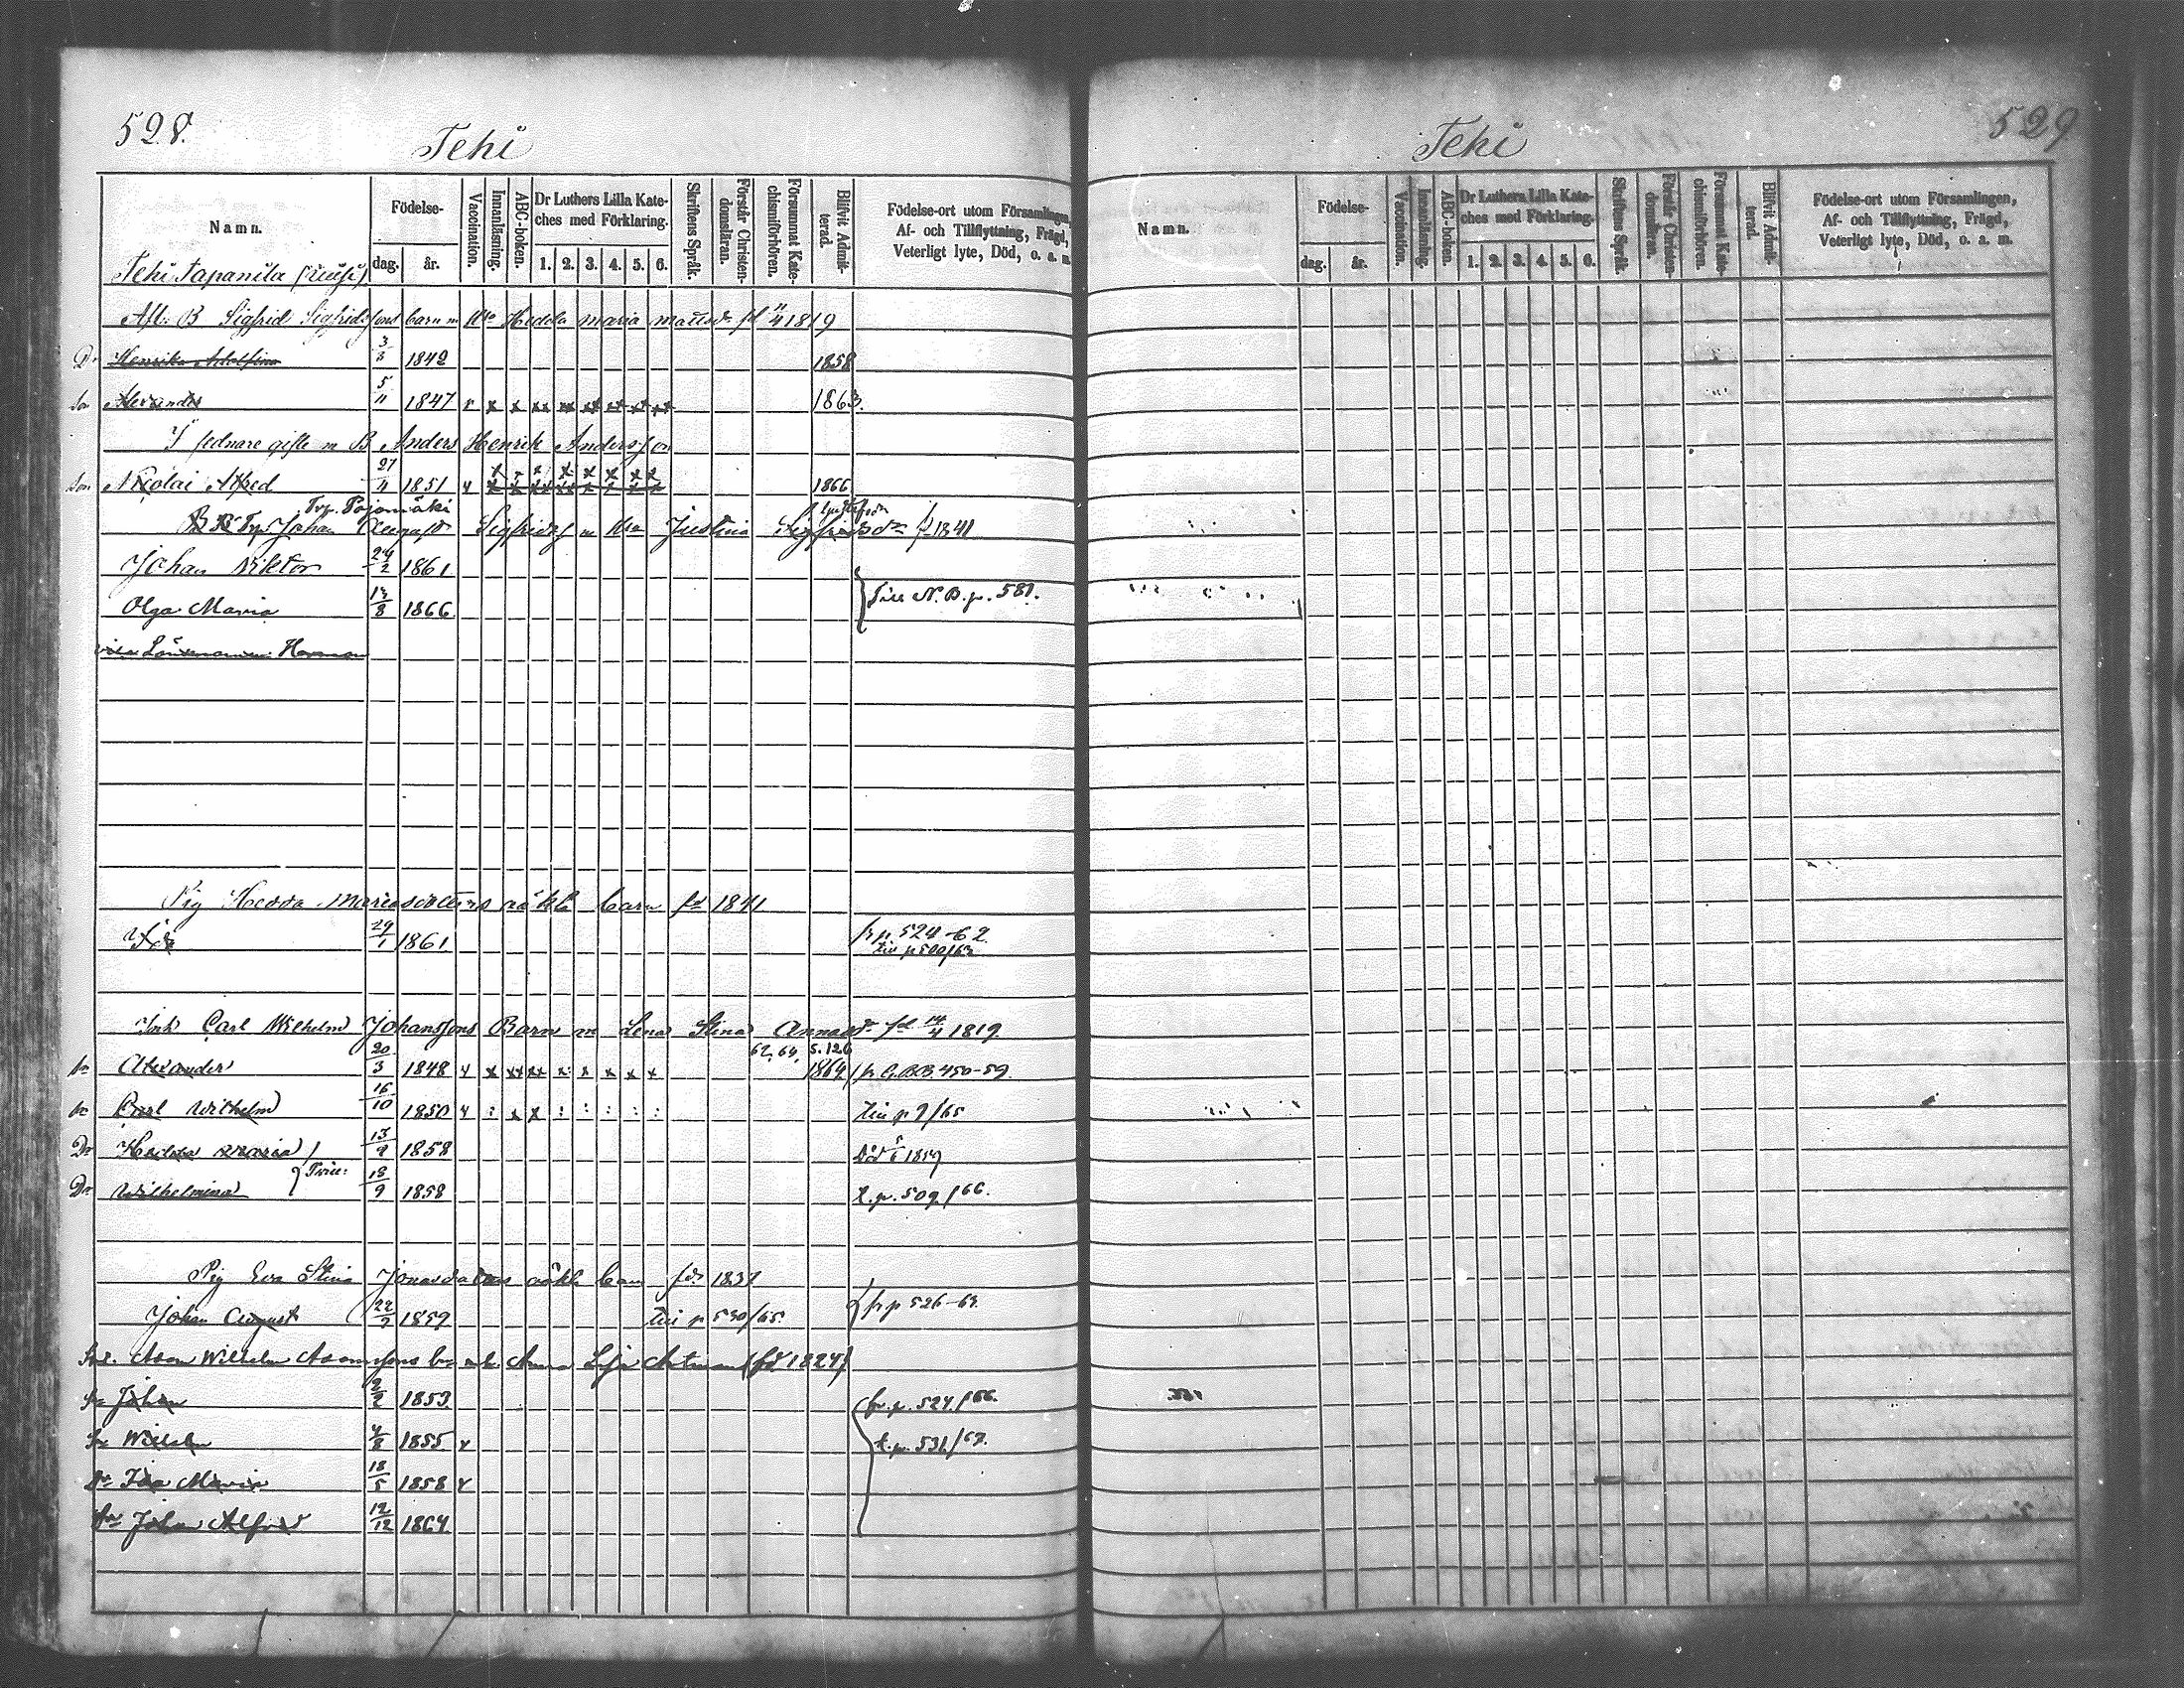 528.
Tehi
Namn.
Födelse-
dag.
år.
Vaccination.
Innanläsning.
ABC-boken.
Dr Luthers Lilla Kate-
ches med Förklaring.
1. 2. 3. 4. 5. 6.
Skriftens Språk.
Förstår Christen-
domsläran.
Försummat Kate-
chismiförhören.
Blifvit Admit-
terad.
Födelse-ort utom Församlingen,
Af- och Tillflyttning, Frägd,
Veterligt lyte, Död, o. a. m.
Tehi Tapanila
Afl. B Sigfrid Sigfridsfons barn m Hedda Maria fd 11/4 1819
Dr Henrika Adolfina 3/3 1842 1858
Son Alexander 5/11 1847 v x x xx xx xx xx xx xx 1863.
I sednare gifte m B Anders Henrik Andersson
Son Nicolai Alfred 27/11 1851 v 1866
Trp. Pajamäki
Johan August Sigfrids m Hu Justina Sigfridsdr f 1841
Johan Viktor 24/2 1861
Olga Maria 13/8 1866 N.B. p. 581.
Pig Hedda Mariasdotters oäkta barn fd 1841
Ida 29/1 1861 fr p. 524-62
p 500/63
Inh Carl Wilhelm Johansfons Barn m Lena Stina Annasdr fd 14/4 1819.
62, 64, S. 126
Sn Alexander 20/3 1848 v x xx xx x x x x x 1864 fr G.B.B. 450-59.
Sn Carl Wilhelm 16/10 1850 v : x x : : : : : p 7/65
Dr Hedda Maria 13/9 1858 Död 1859
Dr Wilhelmina Tvill: 13/9 1858 t. p. 509/66.
Pig Eva Stina Jonasdotters oäkta barn fd 1837
Johan August 22/7 1859 p 530/65. fr p 526-63
Adam Wilhelm Adamsfons bn m h Anna Lisa (fd 1824)
Sn Johan 2/2 1853 fr. p. 524/66.
Sn Wilhelm 4/8 1855 v t. p. 531/67.
Dr Ida Maria 18/5 1858 v
Sn Johan Alfred 12/12 1864
529
Tehi
Namn.
Födelse-
dag.
år.
Vaccination.
Innanläsning.
ABC-boken.
Dr Luthers Lilla Kate-
ches med Förklaring.
1. 2. 3. 4. 5. 6.
Skriftens Språk.
Förstår Christen-
domsläran.
Försummat Kate-
chismiförhören.
Blifvit Admit-
terad.
Födelse-ort utom Församlingen,
Af- och Tillflyttning, Frägd,
Veterligt lyte, Död, o. a. m.